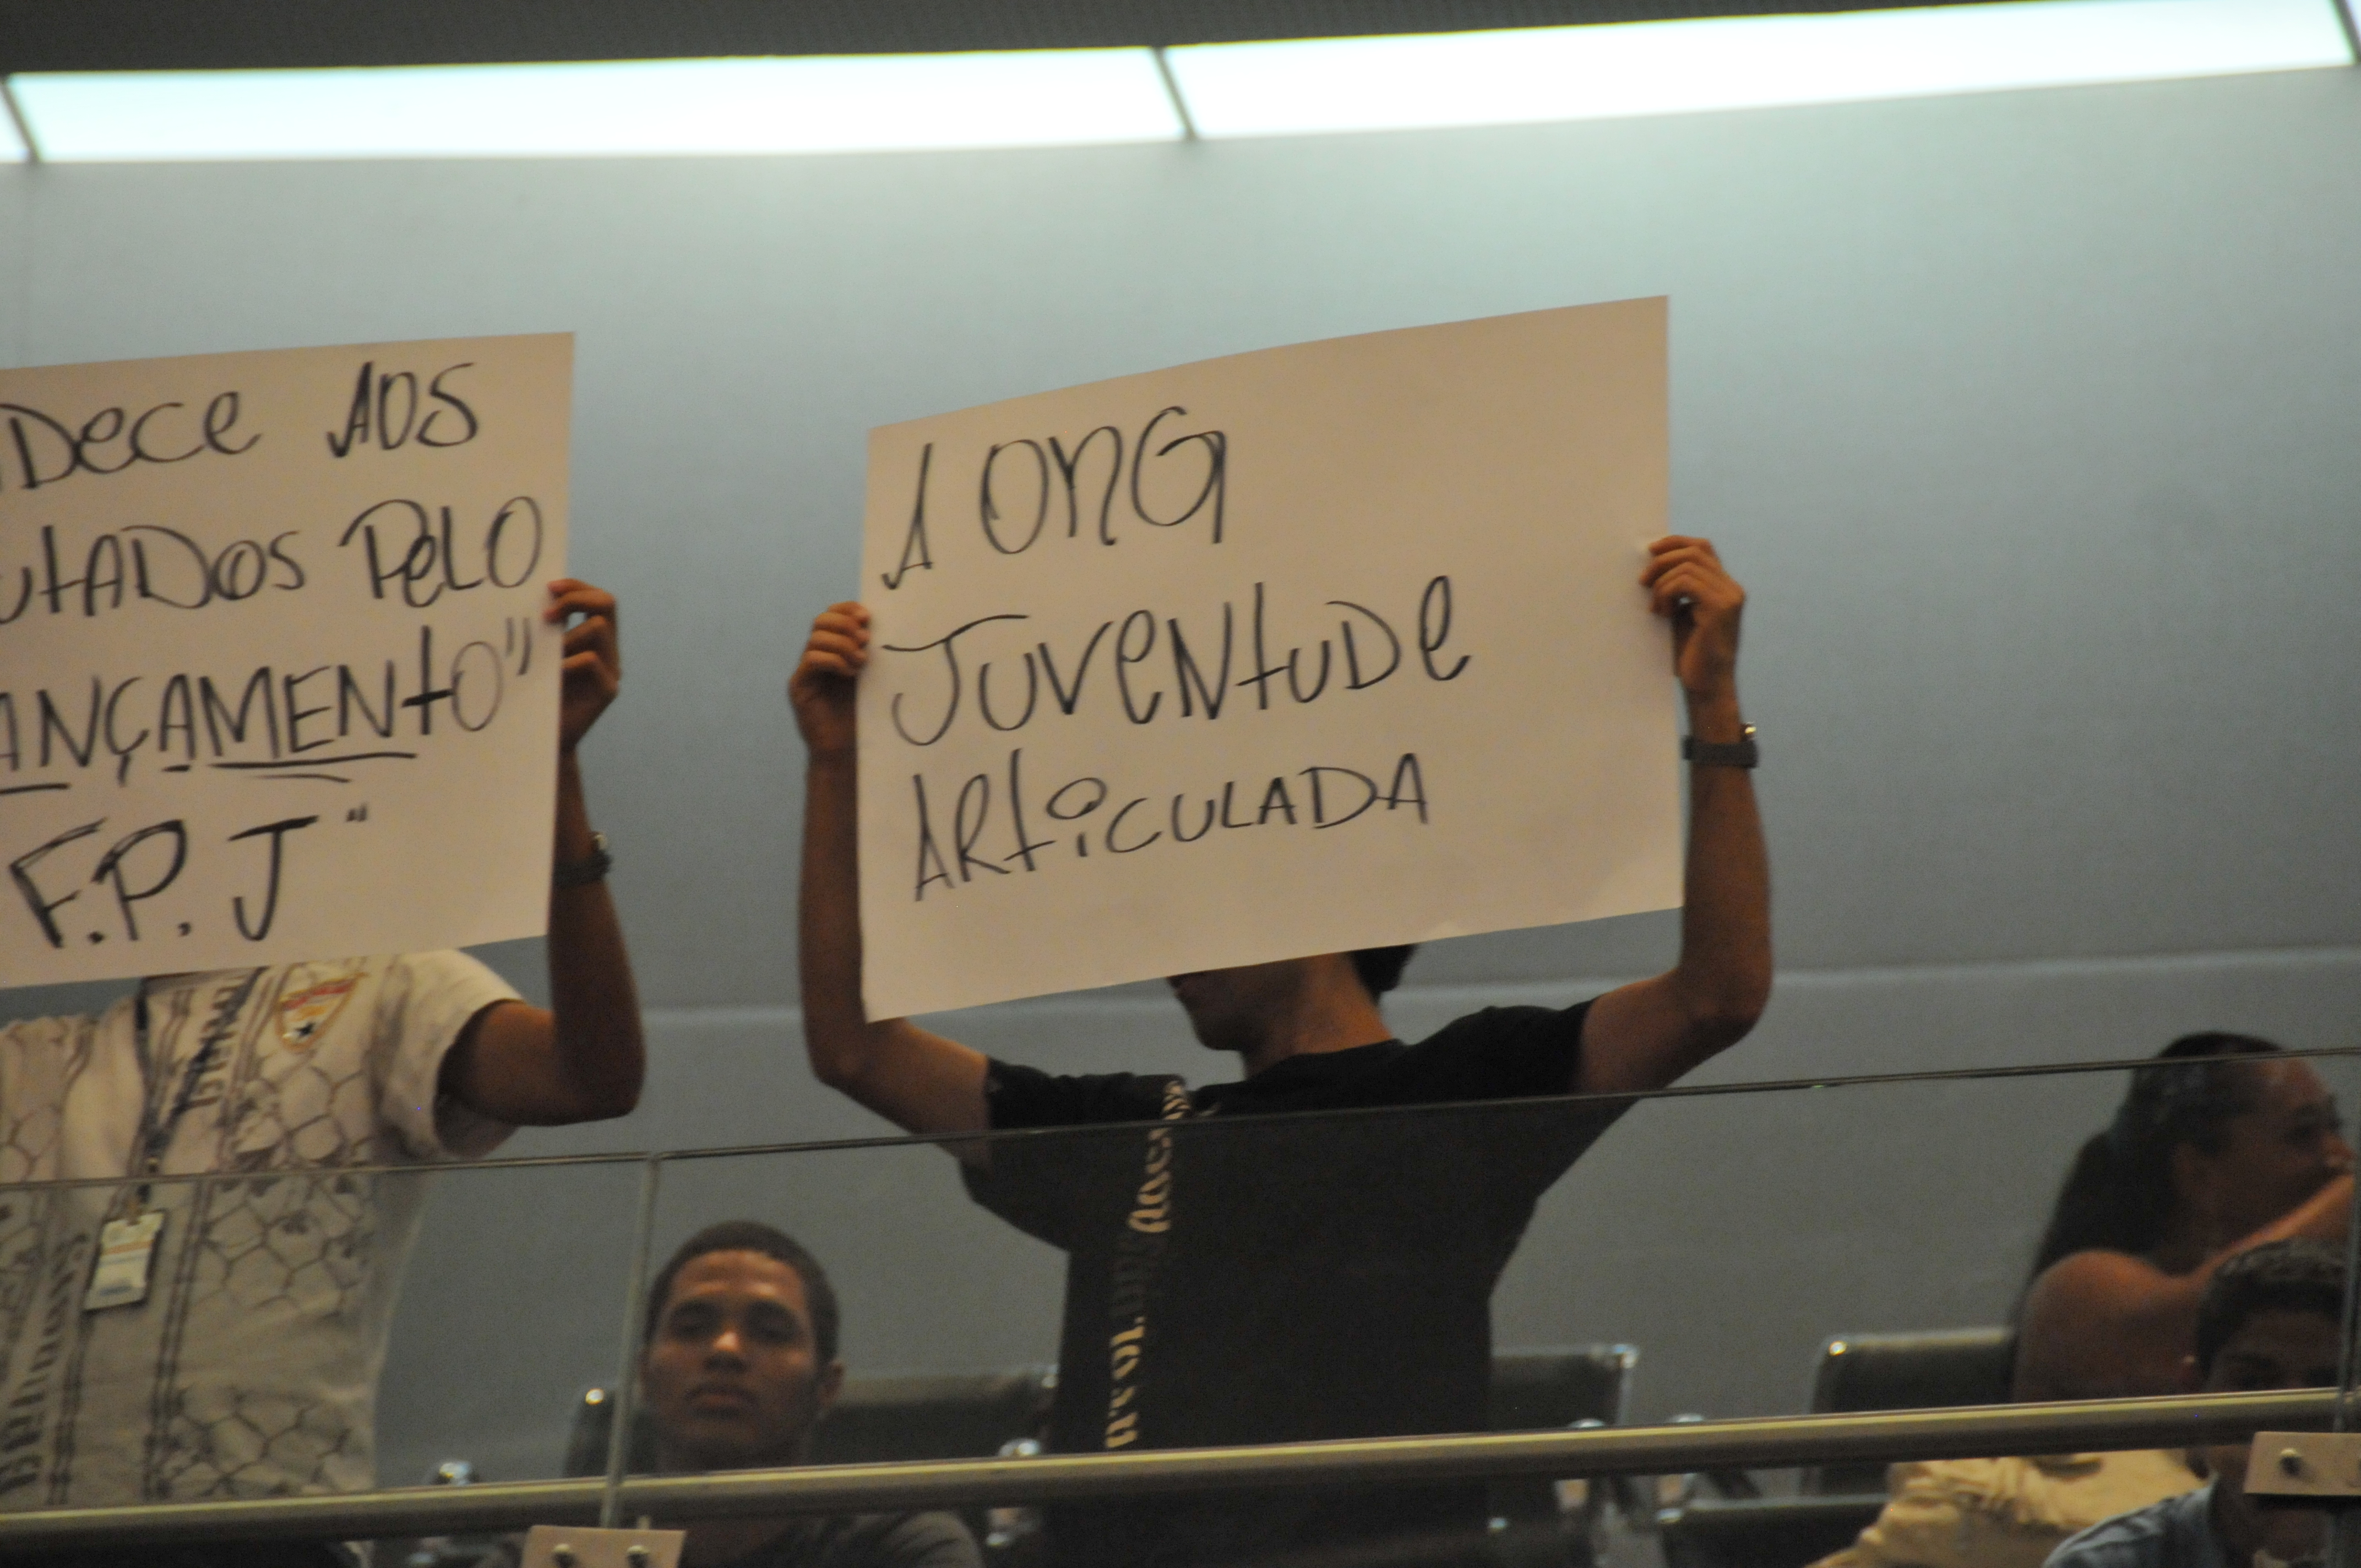 DECE AOS
UtADOS PeLO
ANÇAMENtO"
F.P.J"
A ONG
JUVeNtUDe
ARtiCULADA